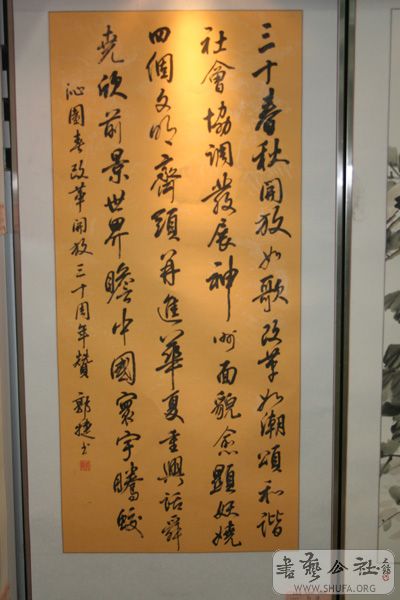 三十春秋開放如歌改革如潮頌和諧
社會協調發展神州面貌愈顯妖嬈
四個文明齊頭并進華夏重興話舜
堯欣前景世界瞻中國寰宇騰蛟
沁園春改革開放三十周年贊 郭捷书
書藝公社
WWW.SHUFA.ORG